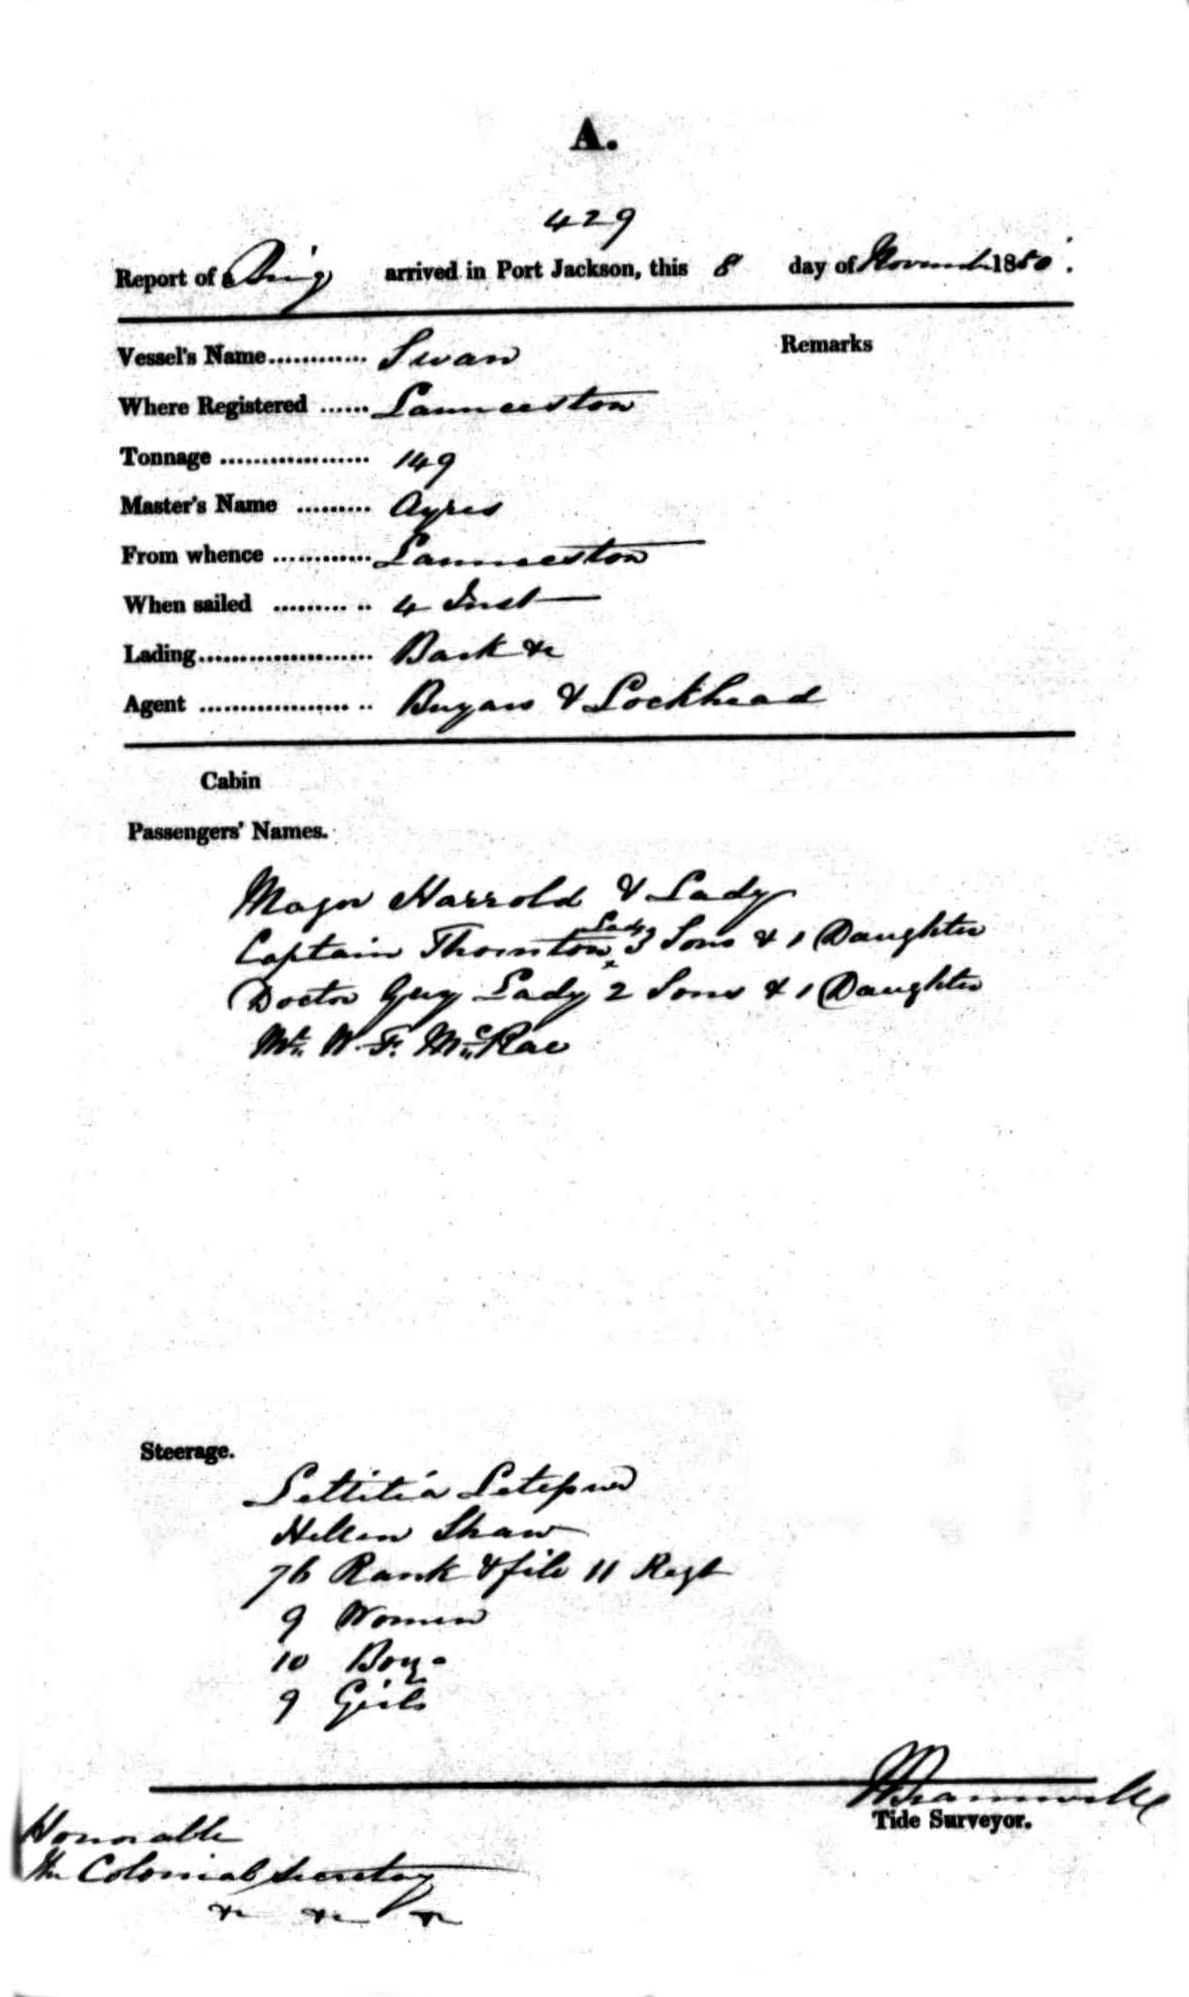 A.
429
Report of a Brig arrived in Port Jackson, this 8 day of November 1850.
Vessel's Name............ Swan
Remarks
Where Registered ...... Launceston
Tonnage .................. 149
Master's Name ......... Ayres
From whence ............ Launceston
When sailed ......... .. 4 Inst
Lading..................... Bark &c
Agent .................. .. & Lockhead
Cabin
Passengers' Names.
Major Harrold & Lady
Captain Thornton Lady 3 Sons & 1 Daughter
Doctor Guy Lady 2 Sons & 1 Daughter
Mr. W. F. McRae
Steerage.
Lettitia
Hellen Shaw
76 Rank & file 11 Regt
9 Women
10 Boys
9 Girls
Tide Surveyor.
Honorable
The Colonial Secretary
&c &c &c